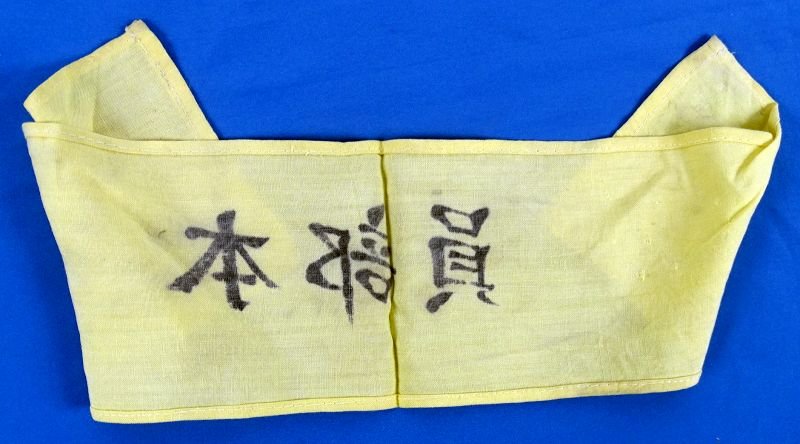 本部員